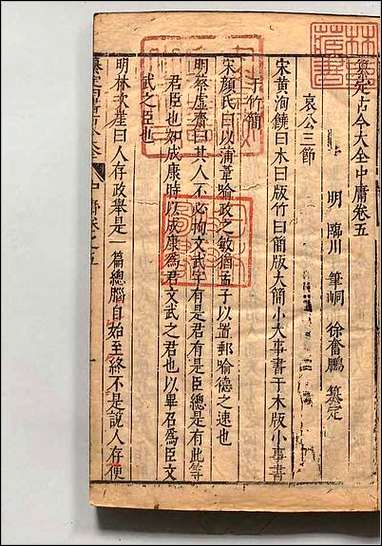 纂定古今大全中庸卷五
明 臨川 筆峒 徐奮鵬 纂定
哀公三節
宋黄洵饒曰木曰版竹曰簡版大簡小大事書于木版小事書
于竹簡
宋顔氏曰以蒲葦喻政之敏猶孟子以置郵喻德之速也
明蔡虚齋曰其人不必拘文武字有是君有是臣總是有此等
君臣也如成康時以成康爲君文武之君也以畢召爲臣文
武之臣也
明林次崖曰人存政舉是一篇總腦自始至終不是說人存便
中庸卷之五